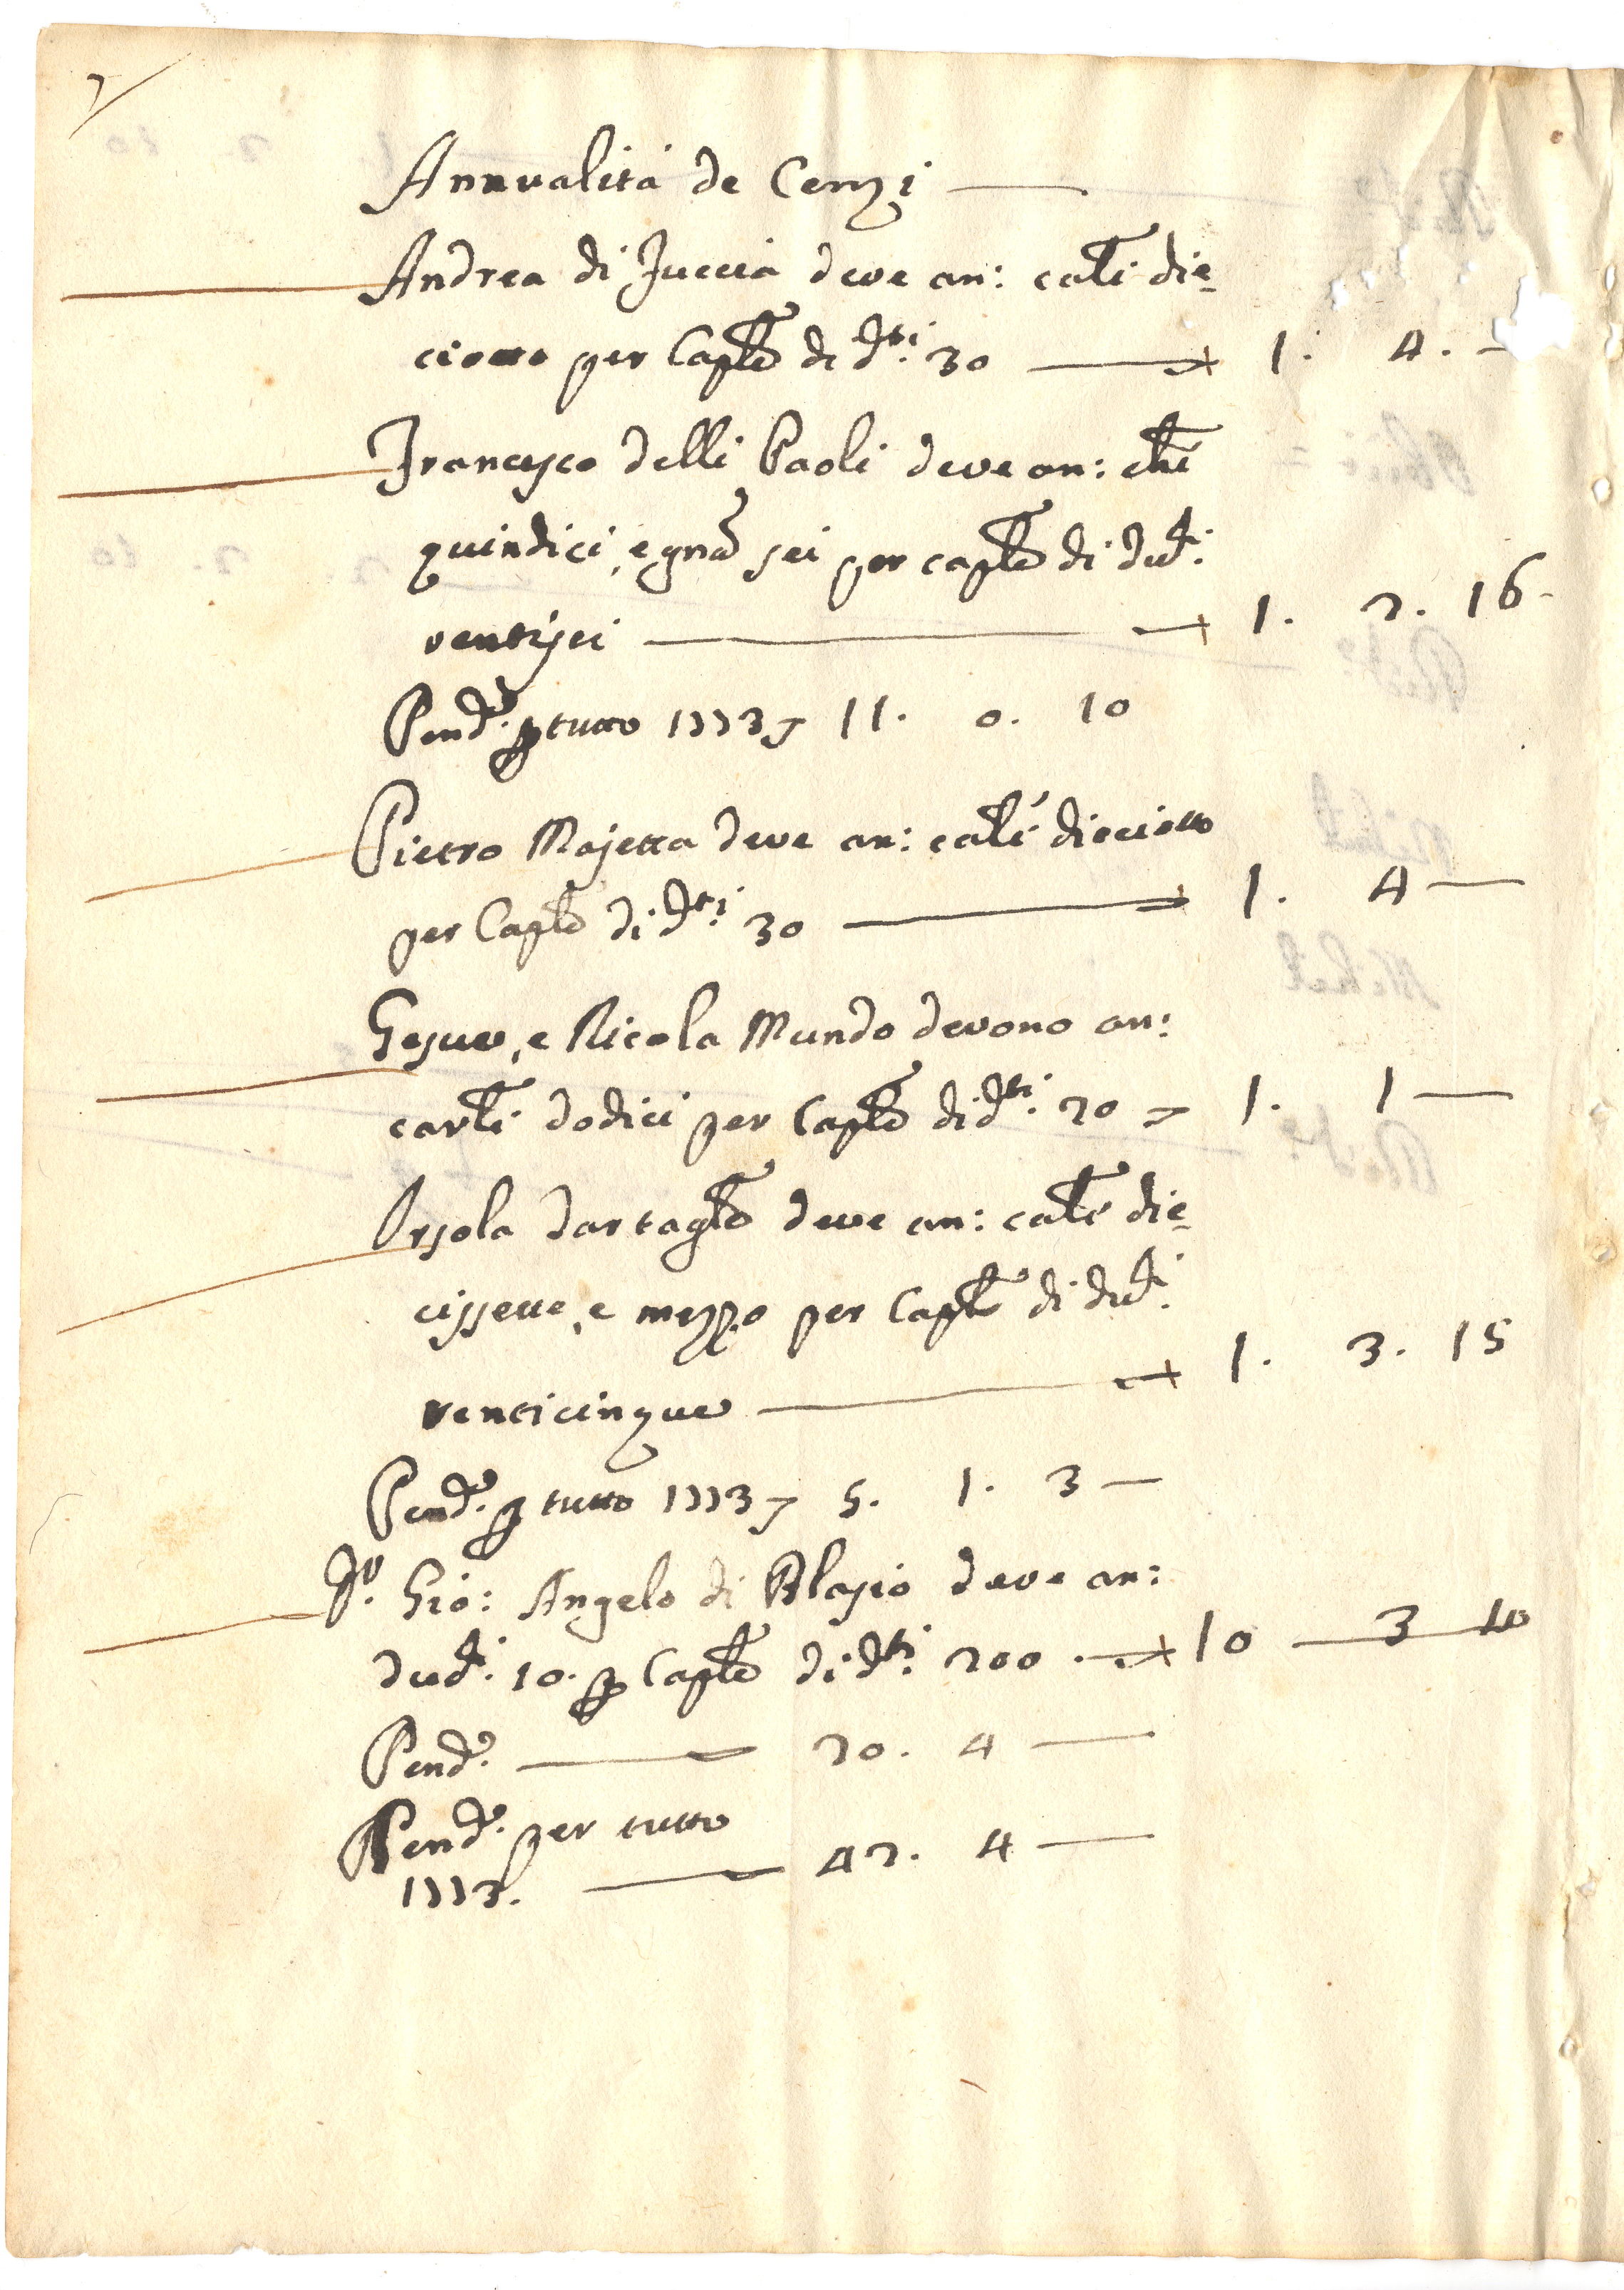 Annualità de Cenzi
Andrea di Juccia deve an: carli die=
ciotto per Caplē di dti: 30 1. 4. —
Francesco delli Paoli deve an: cli
quindici, e gnā sei per caplē di ducti:
ventisei 1. 2. 16
Pendo: p tutto 1773 11. 0. 10
Pietro Majetta deve an: carli dieciotto
per Caplē di dti: 30 1. 4 —
Gesue, e Nicola Mundo devono an:
carli dodici per Caplē di dti: 20 1. 1 —
Orsola dartaglē deve an: carli die=
cissette, e mezzo per Caplē di ducti:
venticinque 1. 3. 15
Pendo: p tutto 1773 5. 1. 3 —
Gio: Angelo di Blasio deve an:
ducti: 10. p Caplē di dti: 200 10 3 10
Pendo: 20. 4 —
Pendo: per tutto
1773. 42. 4 —